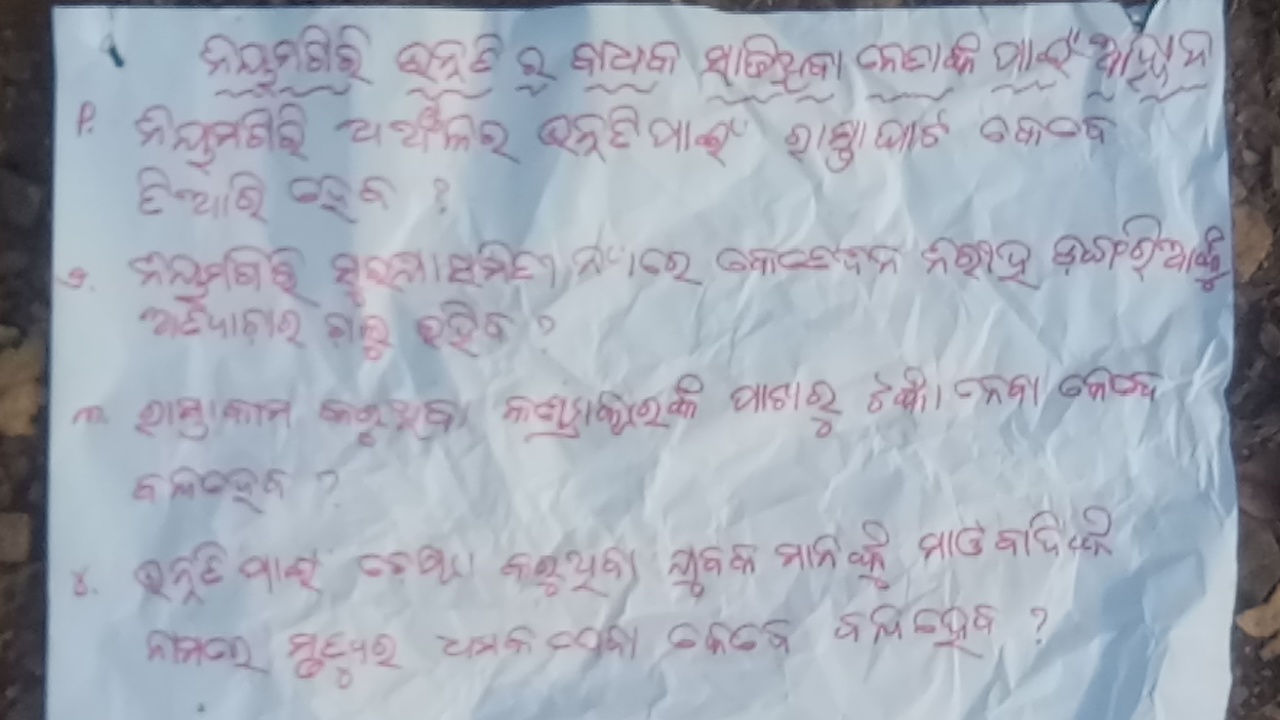 ନିୟମଗିରି ଉନ୍ନତି ର ବାଧକ ସାଜିଥିବା ନେତାଙ୍କ ପାଇଁ ଆହ୍ୱାନ
୧. ନିୟମଗିରି ଅଞ୍ଚଳର ଉନ୍ନତି ପାଇଁ ରାସ୍ତାଘାଟ କେବେ
ତିଆରି ହେବ ?
୨. ନିୟମଗିରି ସୁରକ୍ଷା ସମିତୀ ନାଁରେ କେତେଦିନ ନିରୀହ ଡଙ୍ଗରିଆଙ୍କୁ
ଅତ୍ୟାଚାର ଚାଲୁ ରହିବ ?
୩. ରାସ୍ତାକାମ କରୁଥିବା କଣ୍ଟ୍ରାକ୍ଟରଙ୍କ ପାଖରୁ ଟଙ୍କା ନେବା କେବେ
ବନ୍ଦହେବ ?
୪. ଉନ୍ନତି ପାଇଁ ଚେଷ୍ଟା କରୁଥିବା ଯୁବକ ମାନଙ୍କୁ ମାଓବାଦିଙ୍କ
ନାମରେ ମୃତ୍ୟୁର ଧମକ ଦେବା କେବେ ବନ୍ଦହେବ ?